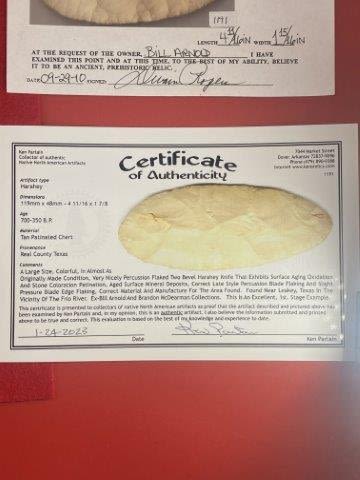 1M1
LENGTH 4 11/16IN WIDTH 1 15/16IN
AT THE REQUEST OF THE OWNER, BILL ARNOLD
EXAMINED THIS POINT AND AT THIS TIME, TO THE BEST OF MY ABILITY, BELIEVE
IT TO BE AN ANCIENT, PREHISTORIC RELIC.
DATE 09-29-10 SIGNED Dwain Rogers
Ken Partain
Collector of authentic
Native North American Artifacts
Certificate
of Authenticity
7044 Market Street
Dover, Arkansas
Artifact type
Harahey
Dimensions
119mm x 48mm - 4 11/16 x 1 7/8
Age
700-350 B.P.
Material
Tan Patinated Chert
Provenance
Real County Texas
Comments
A Large Size, Colorful, In Almost As
Originally Made Condition, Very Nicely Percussion Flaked Two Bevel Harahey Knife That Exhibits Surface Aging Oxidation
And Stone Coloration Perination, Aged Surface Mineral Deposits, Correct Late Style Percussion Blade Flaking And Slight
Pressure Blade Edge Flaking, Correct Material And Manufacture For The Area Found. Found Near Leakey, Texas In The
Vicinity Of The Frio River. Ex-Bill Arnold And Brandon McDearman Collections. This Is An Excellent, 1st. Stage Example.
This certificate is presented to collectors of native North American artifacts as proof that the artifact described and pictured above has
been examined by Ken Partain and, in my opinion, this is an authentic artifact. I also believe the information submitted and printed
above to be true and correct. This evaluation is based on the best of my knowledge and experience to date.
1-24-2023 Ken Partain
Date Ken Partain